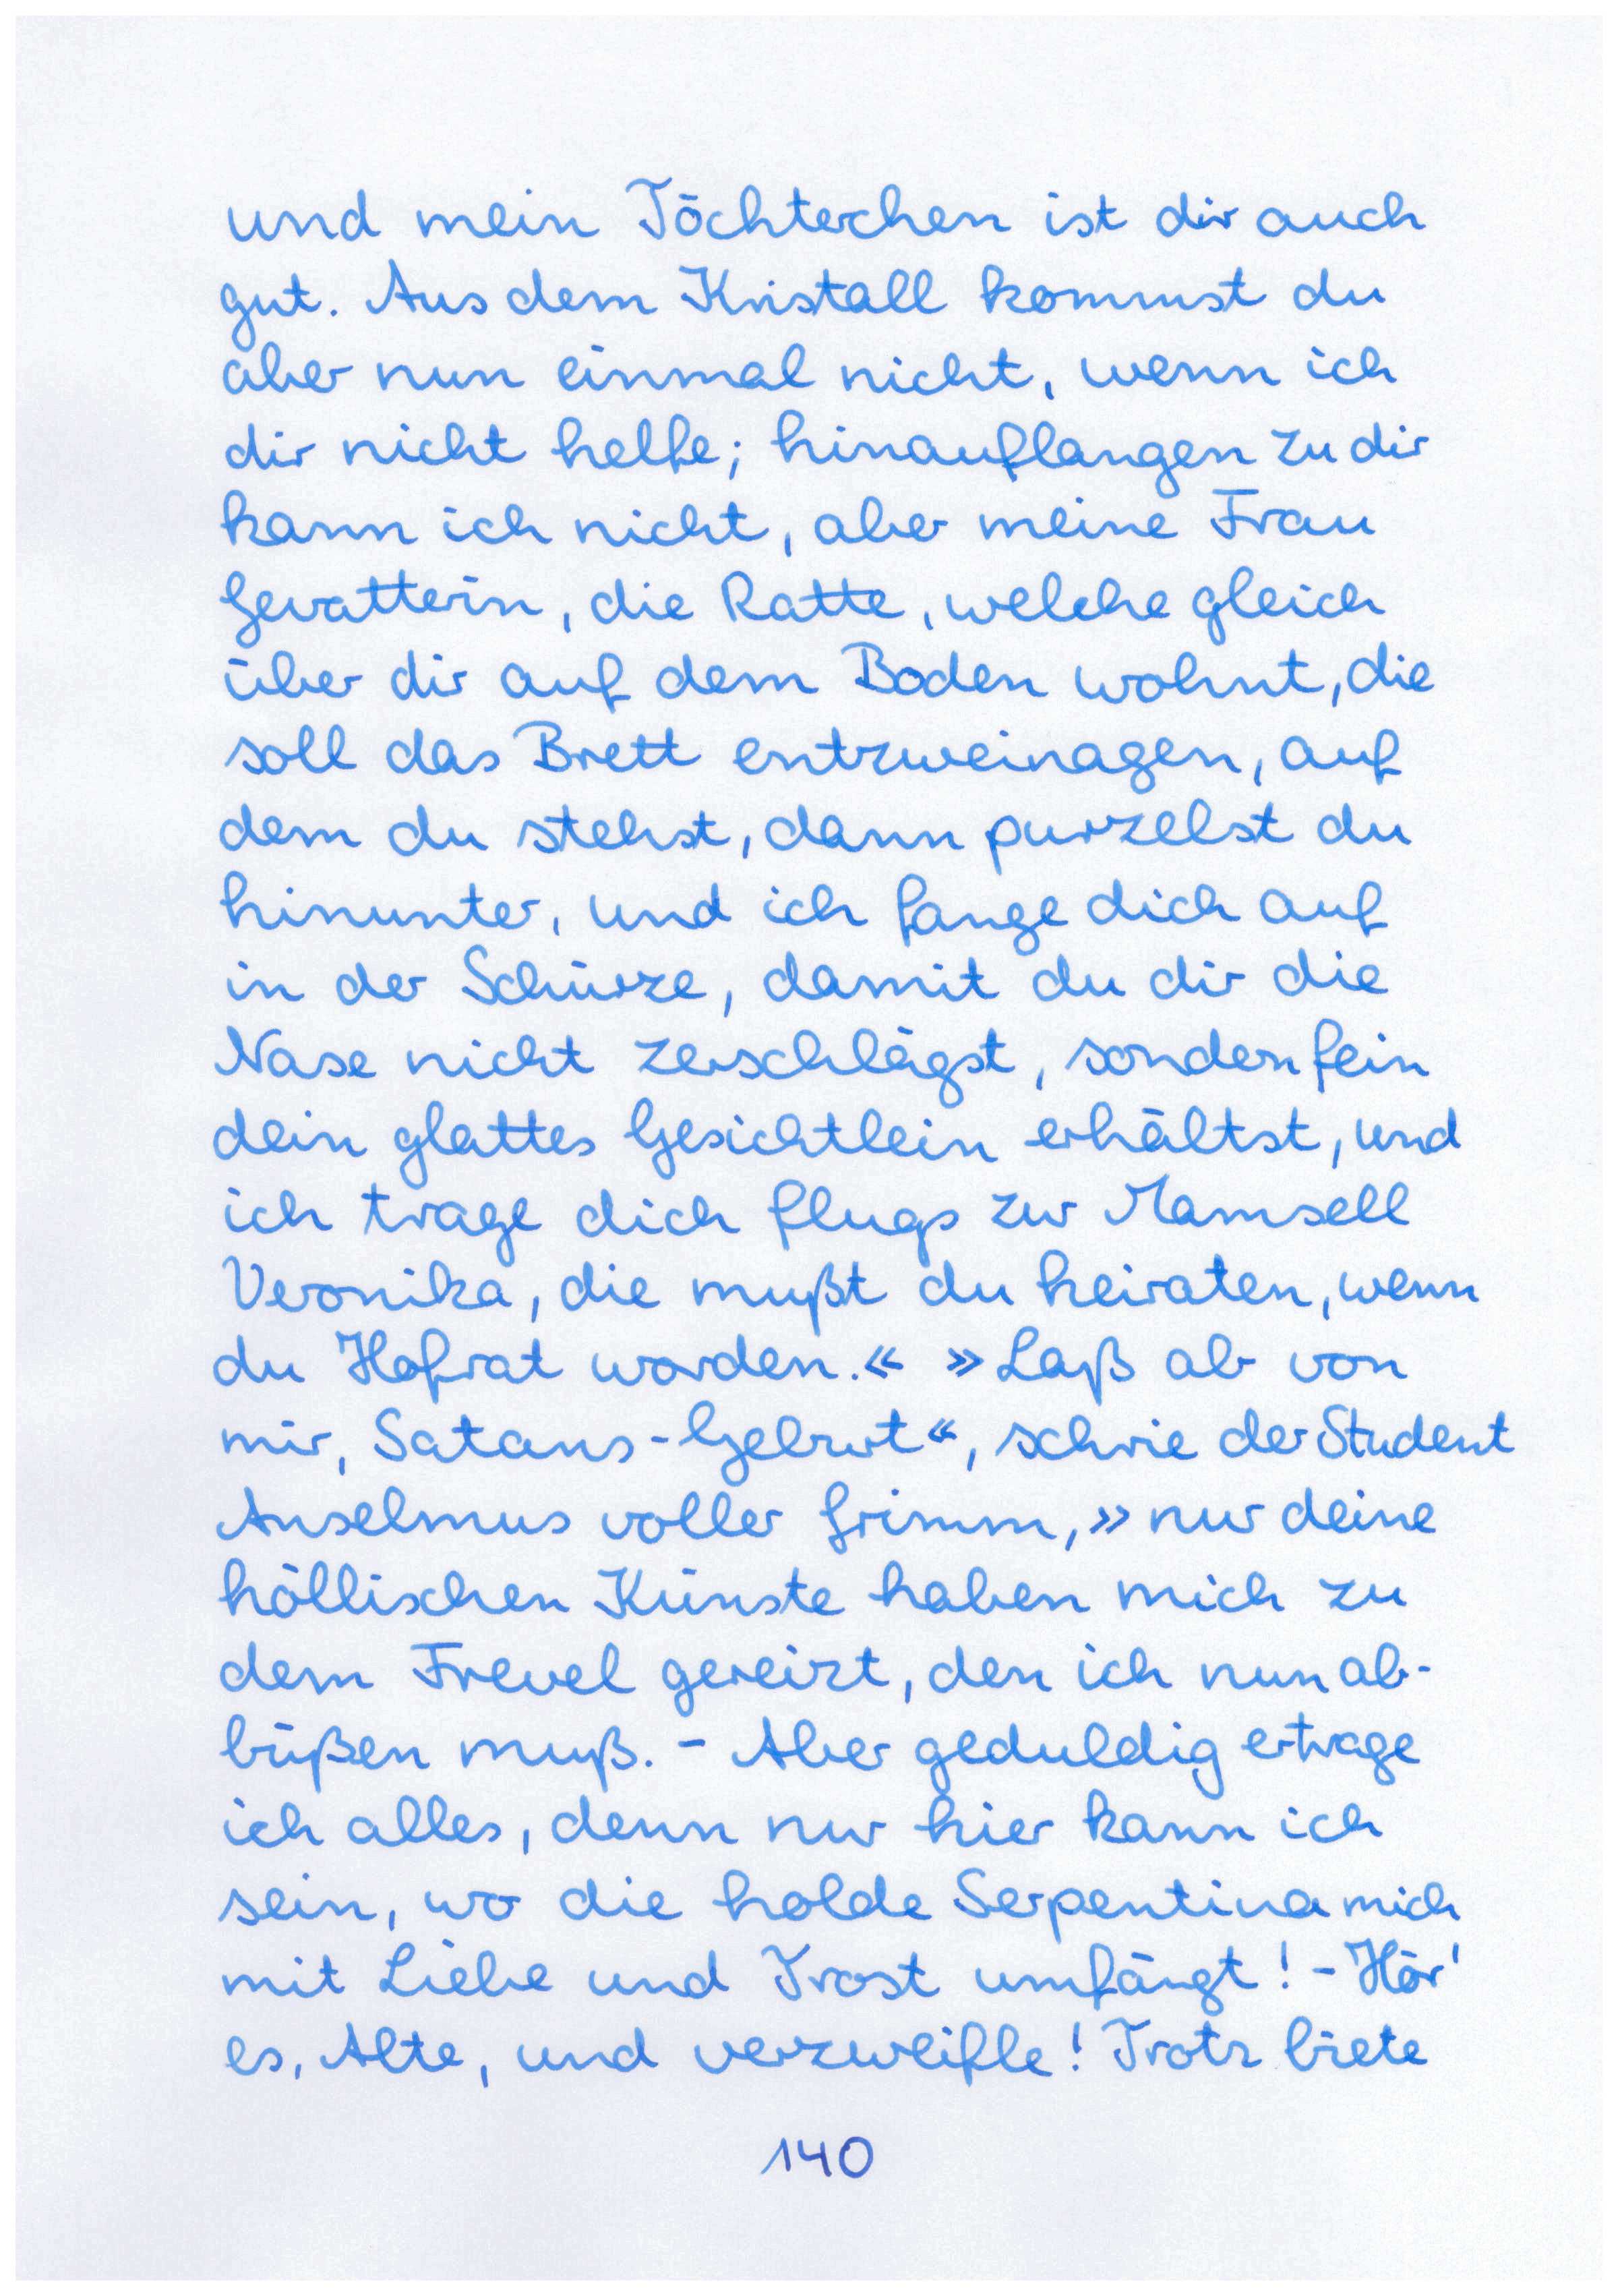 und mein Töchterchen ist dir auch
gut. Aus dem Kristall kommst du
aber nun einmal nicht, wenn ich
dir nicht helfe; hinauflangen zu dir
kann ich nicht, aber meine Frau
Gevatterin, die Ratte, welche gleich
über dir auf dem Boden wohnt, die
soll das Brett entzweinagen, auf
dem du stehst, dann purzelst du
hinunter, und ich fange dich auf
in der Schürze, damit du dir die
Nase nicht zerschlägst, sondern fein
dein glattes Gesichtlein erhältst, und
ich trage dich flugs zur Mamsell
Veronika, die mußt du heiraten, wenn
du Hofrat worden.« »Laß ab von
mir, Satans-Geburt«, schrie der Student
Anselmus voller Grimm, »nur deine
höllischen Künste haben mich zu
dem Frevel gereizt, den ich nun ab-
büßen muß. - Aber geduldig ertrage
ich alles, denn nur hier kann ich
sein, wo die holde Serpentina mich
mit Liebe und Trost umfängt! - Hör'
es, Alte, und verzweifle! Trotz biete
140